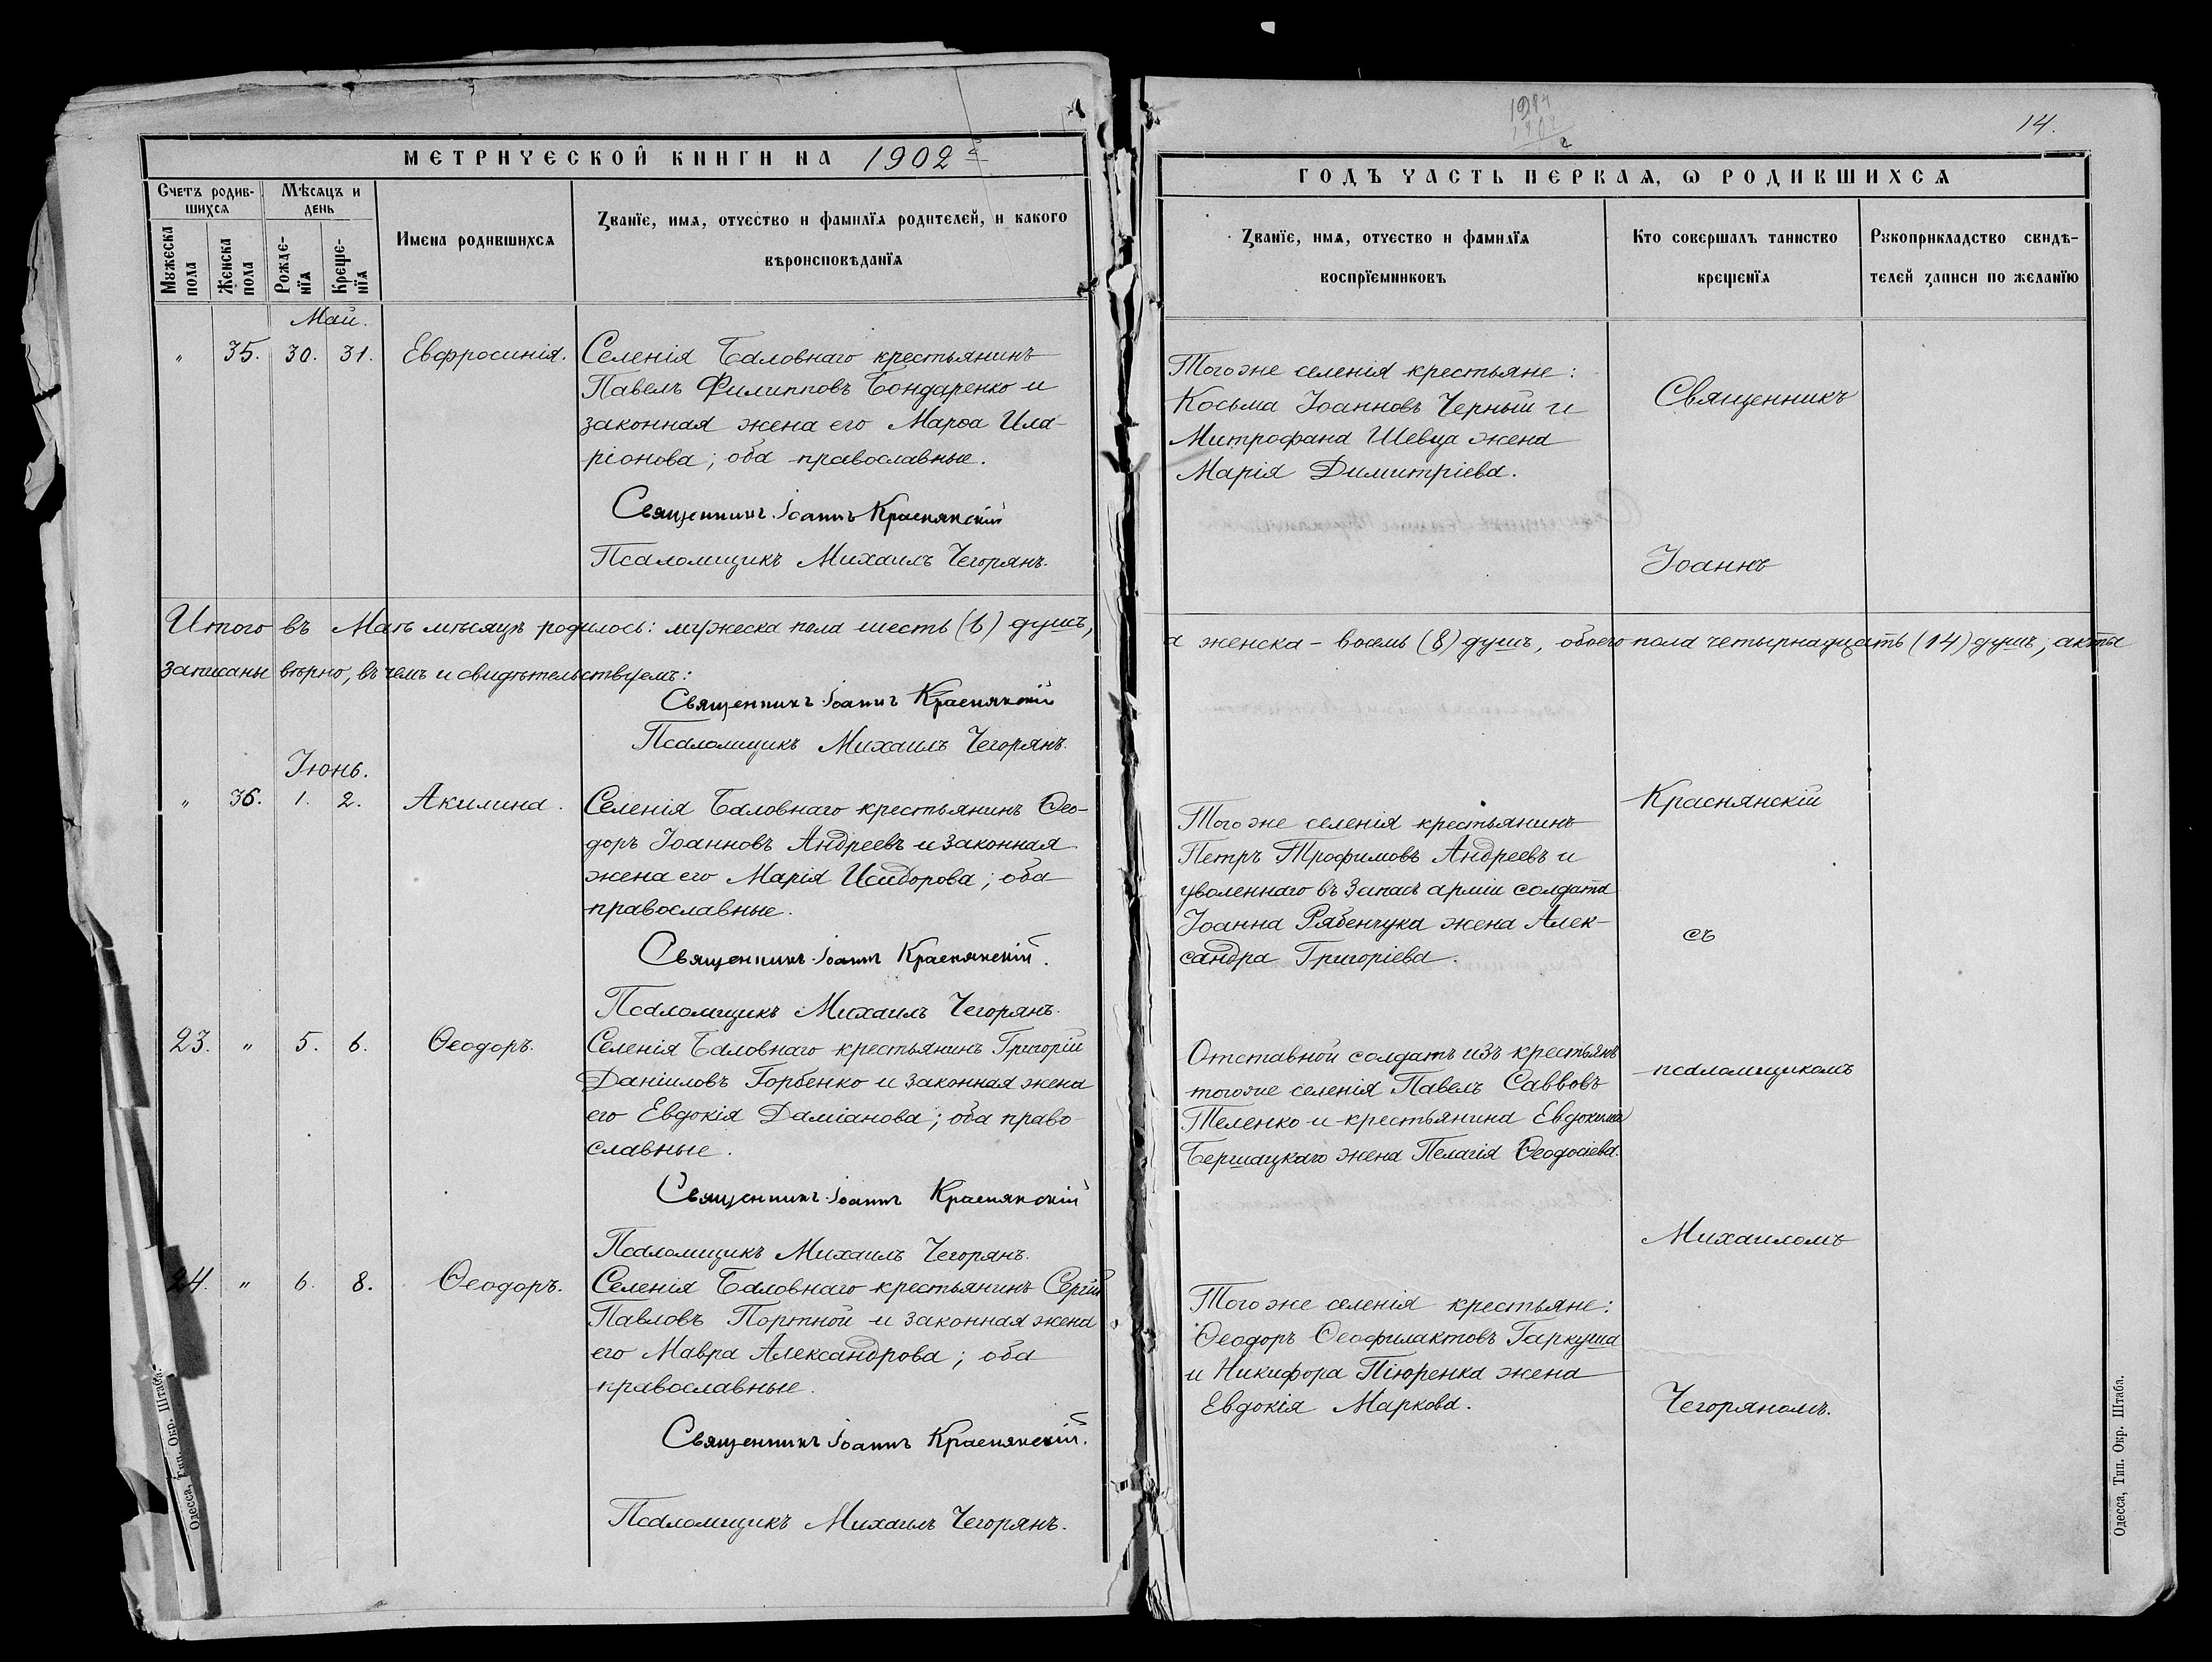 МЕТРИЧЕСКОЙ КНИГИ НА 1902 г.
Счетъ родив-
шихся
Мѣсяцъ и
день
Мужеска
пола
Женска
пола
Рожде-
нїя
Креще-
нїя
Имена родившихся
Званїе, имя, отчество и фамилїя родителей, и какого
вѣроисповѣданїя
Май.
" 35. 30. 31. Евфросинія. Селенія Баловнаго крестьянинъ
Павелъ Филипповъ Бондаренко и
законная жена его Марѳа Ила-
ріонова; оба православные.
Священникъ Іоаннъ Краснянскій
Псаломщикъ Михаилъ Чегорянъ.
Итого въ Маѣ мѣсяцѣ родилось: мужеска пола шесть (6) душъ,
записаны вѣрно, въ чемъ и свидѣтельствуемъ:
Священникъ Іоаннъ Краснянскій
Псаломщикъ Михаилъ Чегорянъ.
Іюнь.
" 36. 1. 2. Акилина. Селенія Баловнаго крестьянинъ Ѳео-
доръ Іоанновъ Андреевъ и законная
жена его Марія Исидорова; оба
православные.
Священникъ Іоаннъ Краснянскій.
Псаломщикъ Михаилъ Чегорянъ.
23. " 5. 6. Ѳеодоръ. Селенія Баловнаго крестьянинъ Григорій
Даніиловъ Горбенко и законная жена
его Евдокія Даміанова; оба право-
славные.
Священникъ Іоаннъ Краснянскій
Псаломщикъ Михаилъ Чегорянъ.
24. " 6. 8. Ѳеодоръ. Селенія Баловнаго крестьянинъ Сергій
Павловъ Портной и законная жена
его Мавра Александрова; оба
православные.
Священникъ Іоаннъ Краснянскій.
Псаломщикъ Михаилъ Чегорянъ.
Одесса, Тип. Окр. Штаба.
14.
ГОДЪ ЧАСТЬ ПЕРВАЯ, Ѡ РОДИВШИХСЯ
Званїе, имя, отчество и фамилїя
воспрїемниковъ
Кто совершалъ таинство
крещенїя
Рукоприкладство свидѣ-
телей записи по желанїю
Того же селенія крестьяне:
Косьма Іоанновъ Черный и
Митрофана Шевца жена
Марія Димитріева.
Священникъ
Іоаннъ
а женска - восемь (8) душъ, обоего пола четырнадцать (14) душъ, акты
Краснянскій
Того же селенія крестьянинъ
Петръ Трофимовъ Андреевъ и
уволеннаго въ запасъ арміи солдата
Іоанна Рябенчука жена Алек-
сандра Григоріева.
съ
Отставной солдатъ изъ крестьянъ
того же селенія Павелъ Саввовъ
Теленко и крестьянина Евдокима
Бершацкаго жена Пелагія Ѳеодосіева.
псаломщикомъ
Михаиломъ
Того же селенія крестьяне:
Ѳеодоръ Ѳеофилактовъ Гаркуша
и Никифора Пиоренка жена
Евдокія Маркова.
Чегоряномъ.
Одесса, Тип. Окр. Штаба.